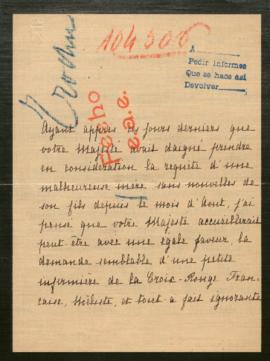 104506
A
Pedir informes
Que se haga así
Devolver
Fecho
Ayant appris les jours derniers que
votre Majesté avait daigné prendre
en considération la requête d'une
malheureuse mère sans nouvelles de
son fils depuis le mois d'Août, j'ai
pensé que votre Majesté accueillerait
peut être avec une égale faveur, la
demande semblable d'une petite
infirmière de la Croix-Rouge Fran-
çaise, modeste, et tout à fait ignorante